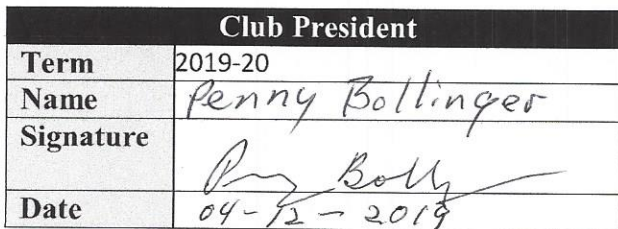 Club President
Term 2019-20
Name Penny Bollinger
Signature
Date 04-12-2019